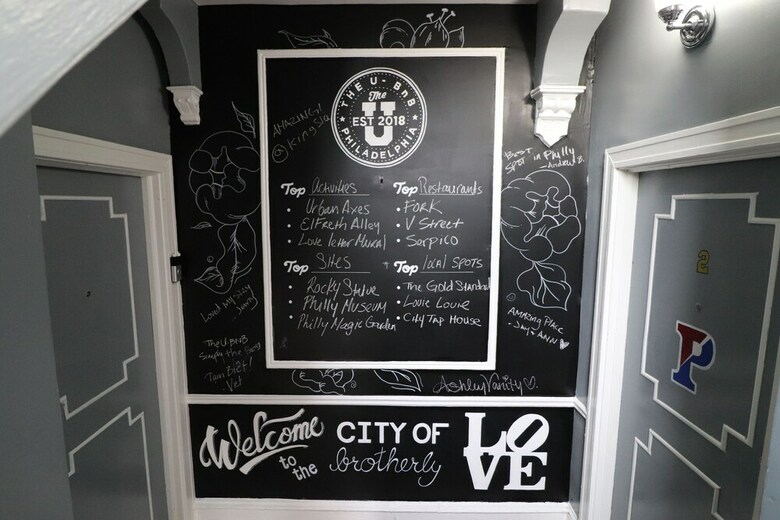 THE U-BnB
The
U
EST 2018
PHILADELPHIA
AMAZING!
Top Activities
• Urban Axes
• ElFreth Alley
• Love letter Mural
Top Restaurants
• FORK
• V Street
• Sarpico
Top Sites
• Rocky Statue
• Philly Museum
• Philly Magic Garden
Top local SPOTS
• The Gold Standard
• Louie Louie
• City Tap House
Best
Spot in Philly
AMAZING PLACE
- Jay & ANN
The U-BNB
Simply the Best
- Vet
Ashley Vanity
Welcome
to the
CITY OF
brotherly
LOVE
2
P